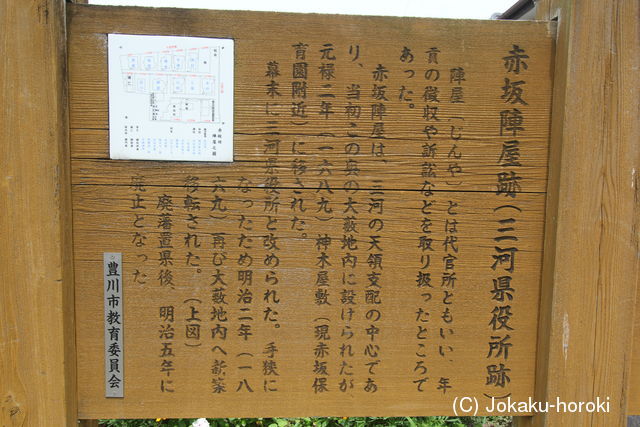 赤坂陣屋跡（三河県役所跡）
陣屋（じんや）とは代官所ともいい、年
貢の徴収や訴訟などを取り扱ったところで
あった。
赤坂陣屋は、三河の天領支配の中心であ
り、当初この奥の大藪地内に設けられたが
元禄二年（一六八九）神木屋敷（現赤坂保
育園附近）に移された。
幕末に三河県役所と改められた。手狭に
なったため明治二年（一八
六九）再び大藪地内へ新築
移転された。（上図）
廃藩置県後、明治五年に
廃止となった
豊川市教育委員会
(C) Jokaku-horoki